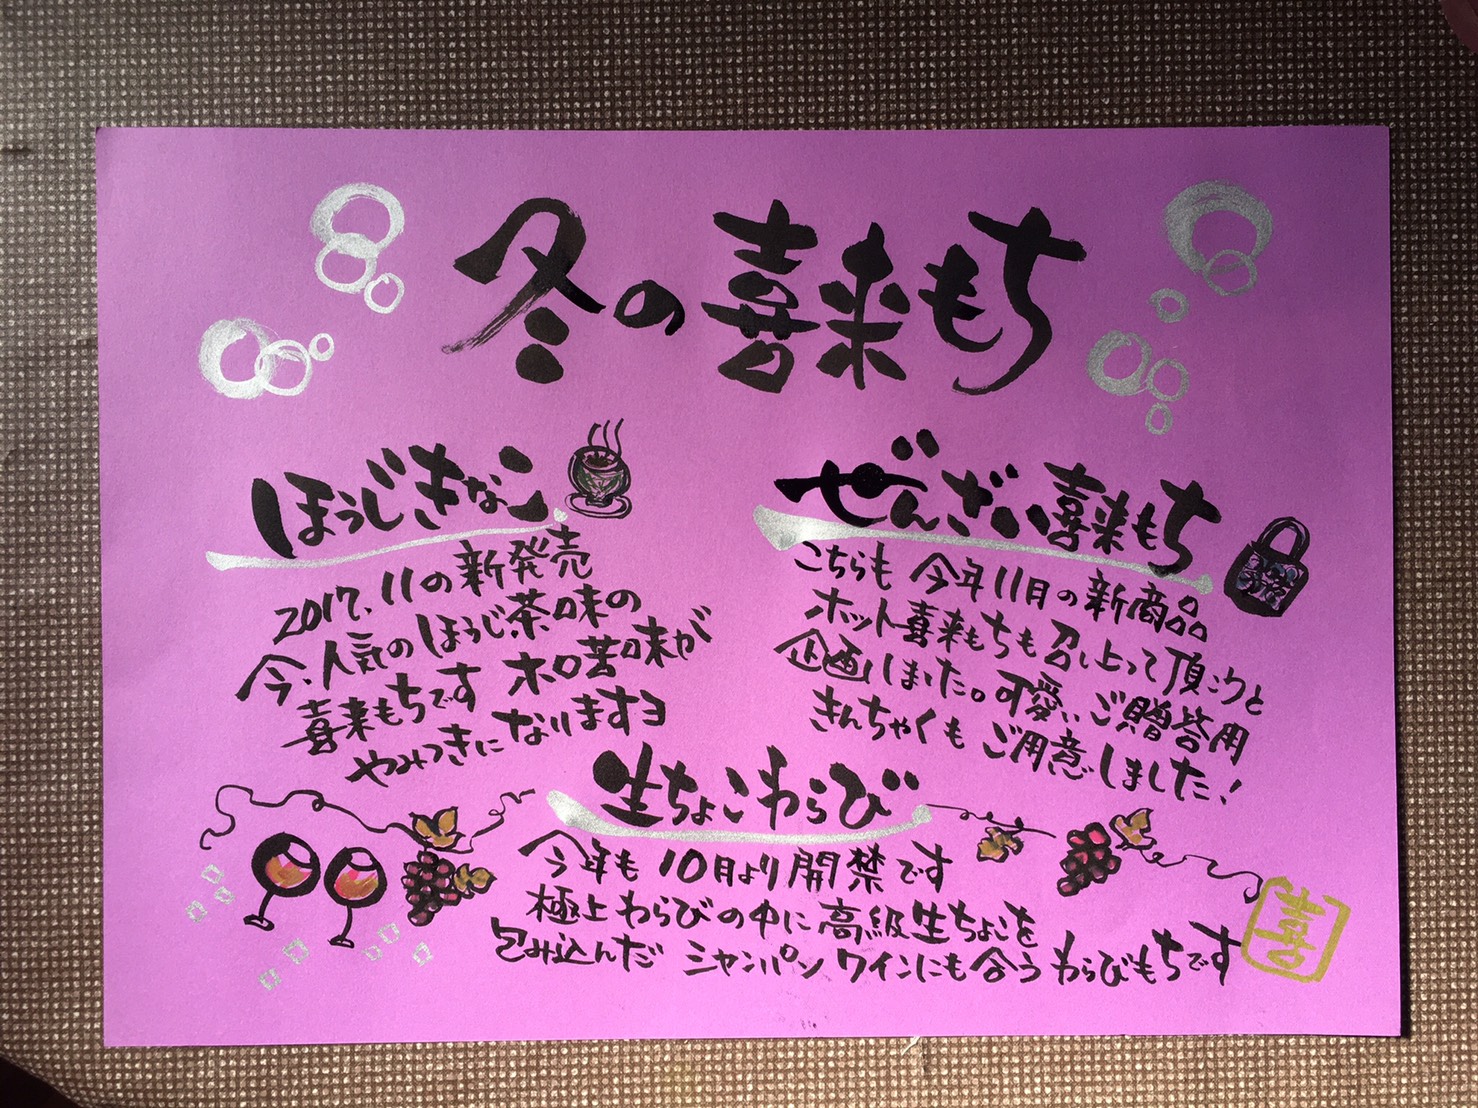 冬の喜来もち
ほうじきなこ
2017.11の新発売
今、人気のほうじ茶味の
喜来もちです ホロ苦味が
やみつきになりますヨ
ぜんざい喜来もち
こちらも 今年11月の新商品
ホット喜来もちも召し上って頂こうと
企画しました。可愛いご贈答用
きんちゃくも ご用意しました!
生ちょこわらび
今年も 10月より開禁です
極上わらびの中に高級生ちょこを
包み込んだ シャンパン ワインにも合う わらびもちです
喜